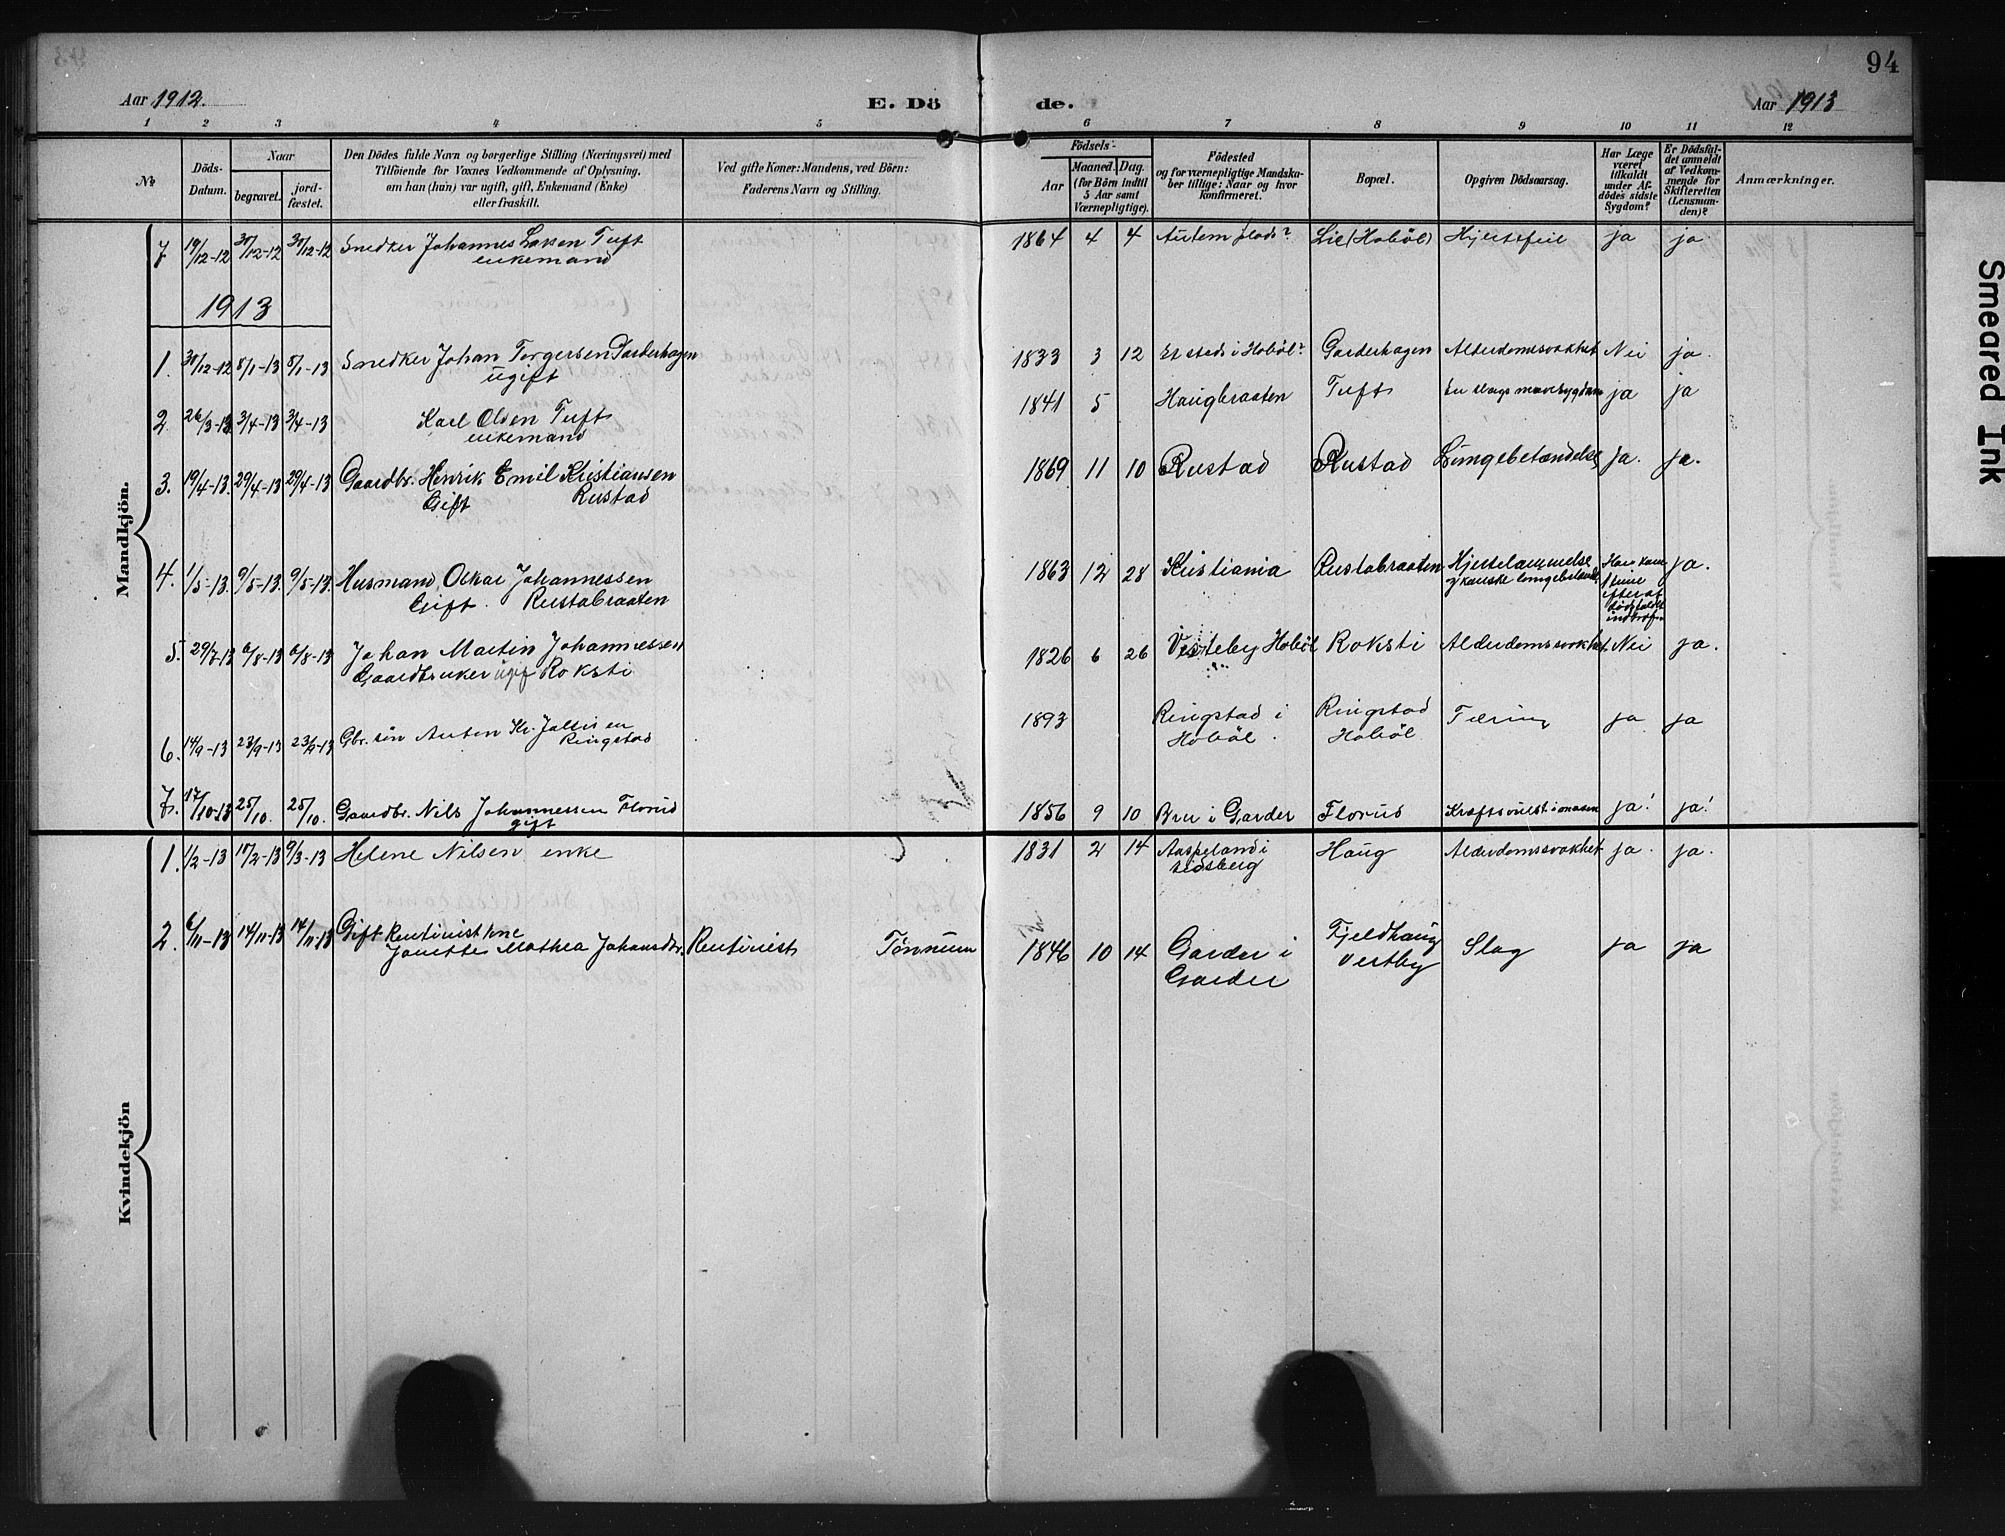 94
Aar 1912.
E. Dö de.
Aar 1913
1 2 3 4 5 6 7 8 9 10 11 12
№
Döds-Datum.
Naar
begravet.
jord-fæstet.
Den Dödes fulde Navn og borgerlige Stilling (Næringsvei) med
Tilföiende for Voxnes Vedkommende af Oplysning.
om han (hun) var ugift, gift, Enkemand (Enke)
eller fraskilt.
Ved gifte Koner: Mandens, ved Börn:
Faderens Navn og Stilling.
Födsels-
Aar
Maaned.
Dag.
(for Börn indtil
5 Aar samt
Værnepligtige).
Födested
og for værnepligtige Mandska-
ber tillige: Naar og hvor
konfirmeret.
Bopæl.
Opgiven Dödsaarsag.
Har Læge
været
tilkaldt
under Af-
dödes sidste
Sygdom?
Er Dödsfal-
det anmeldt
af Vedkom-
mende for
Skifteretten
(Lensman-
den)?
Anmærkninger.
Mandkjön.
7 19/12-12 30/12-12 30/12-12 Snedker Johannes Larsen Tuft 1864 4 4 Lie (Hobøl) Hjertefeil ja ja
enkemand
1913
1. 30/12-12 8/1-13 8/1-13 Snedker Johan Torgersen Garderhagen 1833 3 12 Et sted i Hobøl? Garderhagen Alderdomssvakhet Nei ja.
ugift
2 26/3-13 3/4-13 3/4-13 Karl Olsen Tuft 1841 5 Haugbraaten Tuft En slags mavesygdom ja ja
enkemand
3. 19/4-13. 29/4-13 29/4-13 Gaardbr. Henrik Emil Kristiansen 1869 11 10 Rustad Rustad Lungebetændelse ja. ja.
Gift Rustad
4. 1/5-13. 9/5-13. 9/5-13. Husmand Oskar Johannessen 1863 12 28 Kristiania Rustabraaten Hjertelammelse ja.
Gift. Rustabraaten
og kanske lungebetænd.
efter at
dødsfaldet
5. 29/7-13 6/8-13 6/8-13 Johan Martin Johannessen 1826 6 26 Vesteby Hobøl Roksti Alderdomssvakhet. Nei ja.
Gaardbruker ugif Roksti
6. 14/9-13 23/9-13 23/9-13 Gbr. søn Anton Kr. 1893 Ringstad i Ringstad Tæring ja ja
Ringstad
Hobøl. Hobøl
7. 17/10-13 25/10. 25/10. Gaardbr. Nils Johannessen Florud 1856 9 10 Bru i Garder Florud Kræftsvulst i maven ja! ja!
gift
Kvindekjön
1. 1/2-13 17/2-13 9/3-13 Helene Nilsen enke 1831 2 14 Aaspeland i Haug Alderdomssvakhet ja. ja.
Eidsberg
2. 6/11-13 14/11-13 14/11-13 Gift Rentinistkone
Janette Mathea Johansdr. Rentinist Tønnum 1846 10 14 Garder i Fjeldhaug Slag ja ja
Garder Vestby
Smeared Ink